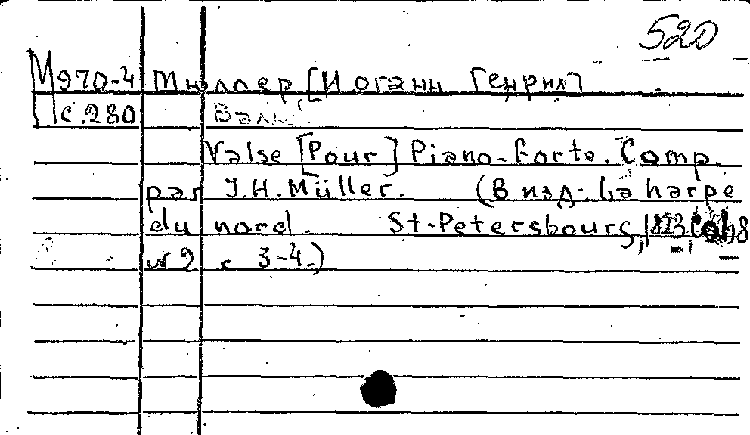 520
М970-4 Мюллер, [Иоганн Генрих]
Пс.280 Вальс
Valse [Pour] Piano-forte. Comp.
par J.H. Müller. (В изд: La harpe
du nord. St-Petersbourg, 1823
№ 9 с 3-4.)